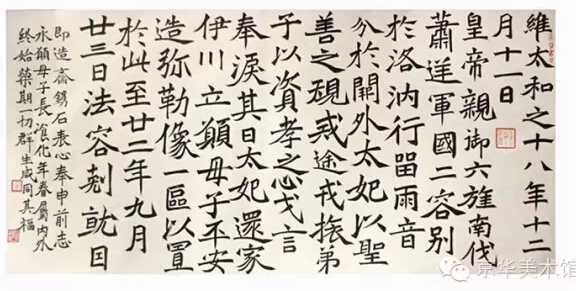 維太和之十八年十二
月十一日
皇帝親御六旌南伐
蕭逆軍國二容別
於洛汭行留兩音
分於闕外太妃以聖
善之規戒途戎旅弟
子以資孝之心戈言
奉淚其日太妃還家
伊川立願母子平安
造弥勒像一區以置
於此至廿二年九月
廿三日法容剋就因
即造齋鐫石表心奉申前志
永願母子長化年眷屬內外
終始榮期一切群生咸同其福
京华美术馆